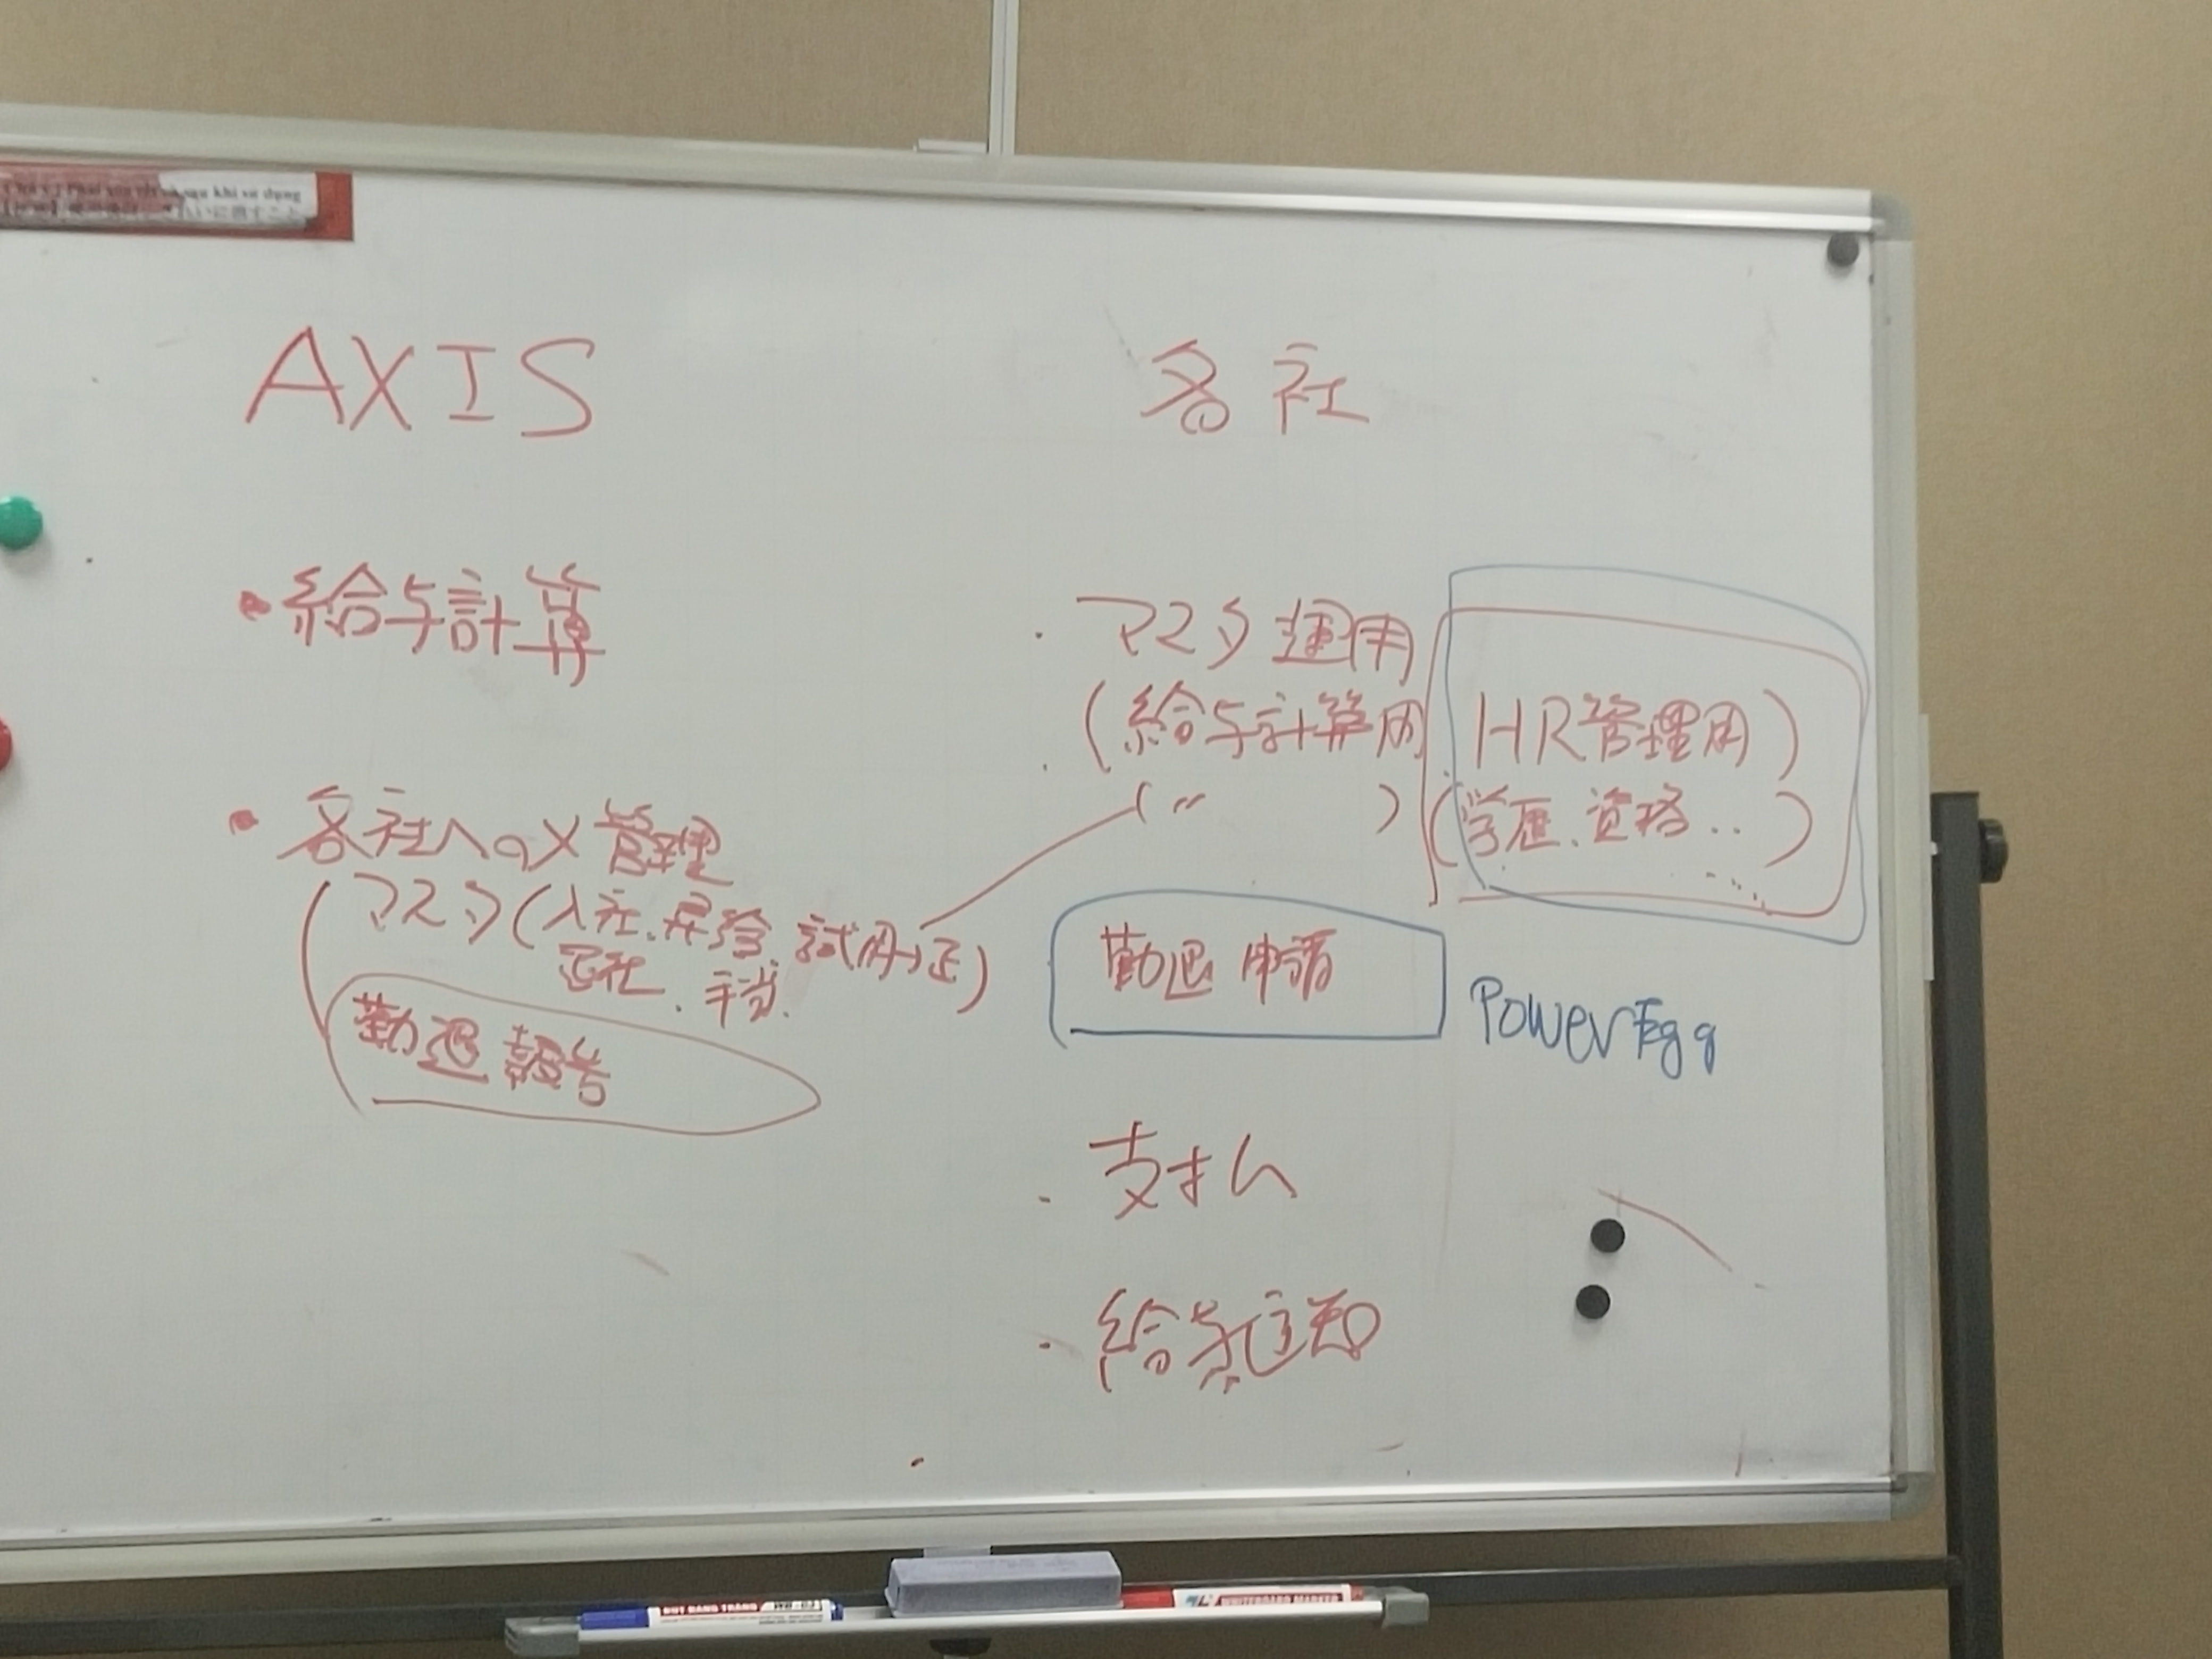 Chú ý: Phải xóa
sau khi sử dụng
れいに消すこと
AXIS
・給与計算
・各社への〆管理
(マスタ(入社、昇給、試用→正)
退社、手当
勤退報告
各社
・マスタ運用
(給与計算用 HR管理用)
(〃 ) (学歴、資格‥)
勤退申請
PowerEgg
・支払
・給与通知
BUT BANG TRANG
WHITEBOARD MARKER